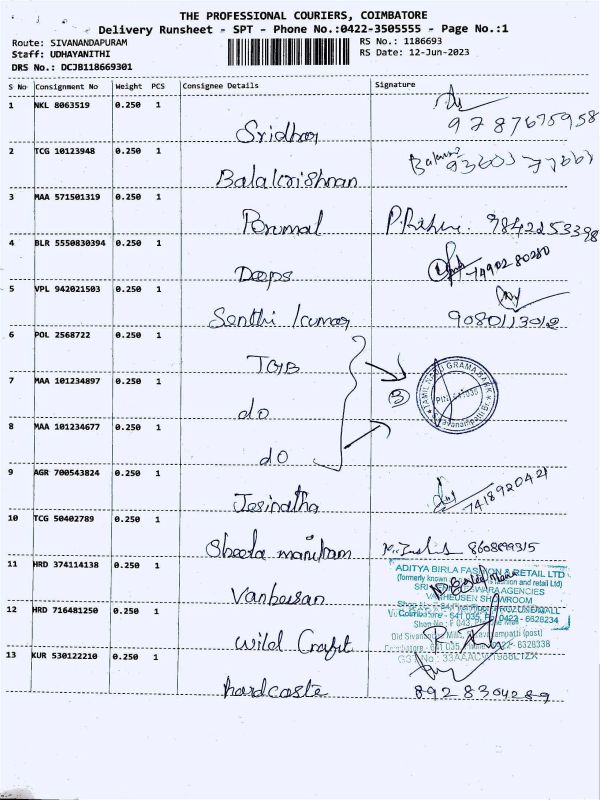 THE PROFESSIONAL COURIERS, COIMBATORE
Delivery Runsheet - SPT - Phone No.:0422-3505555 - Page No.:1
Route: SIVANANDAPURAM
Staff: UDHAYANITHI
DRS No.: DCJB118669301
RS No.: 1186693
RS Date: 12-Jun-2023
S No Consignment No Weight PCS Consignee Details Signature
1 NKL 8063519 0.250 1
Sridhar 9787675958
2 TCG 10123948 0.250 1
Balakrishnan
3 MAA 571501319 0.250 1
Porumal 9842253398
4 BLR 5550830394 0.250 1
Deeps 7490280280
5 VPL 942021503 0.250 1
Senthi kumar 9080113012
6 POL 2568722 0.250 1
TGB
7 MAA 101234897 0.250 1
do 3
TAMIL NADU GRAMA BANK
8 MAA 101234677 0.250 1
do
9 AGR 700543824 0.250 1
Jesindha 7418920421
10 TCG 50402789 0.250 1
Sheela manikam 860899315
11 HRD 374114138 0.250 1
Vanheusan
ADITYA BIRLA FASHION & RETAIL LTD
(formerly known fashion and retail Ltd)
AGENCIES
VANHEUSEN SHOWROOM
12 HRD 716481250 0.250 1
Coimbatore - 641 035, 0422 - 6628234
Wild Craft
13 KUR 530122210 0.250 1
hardcaste 8928304289